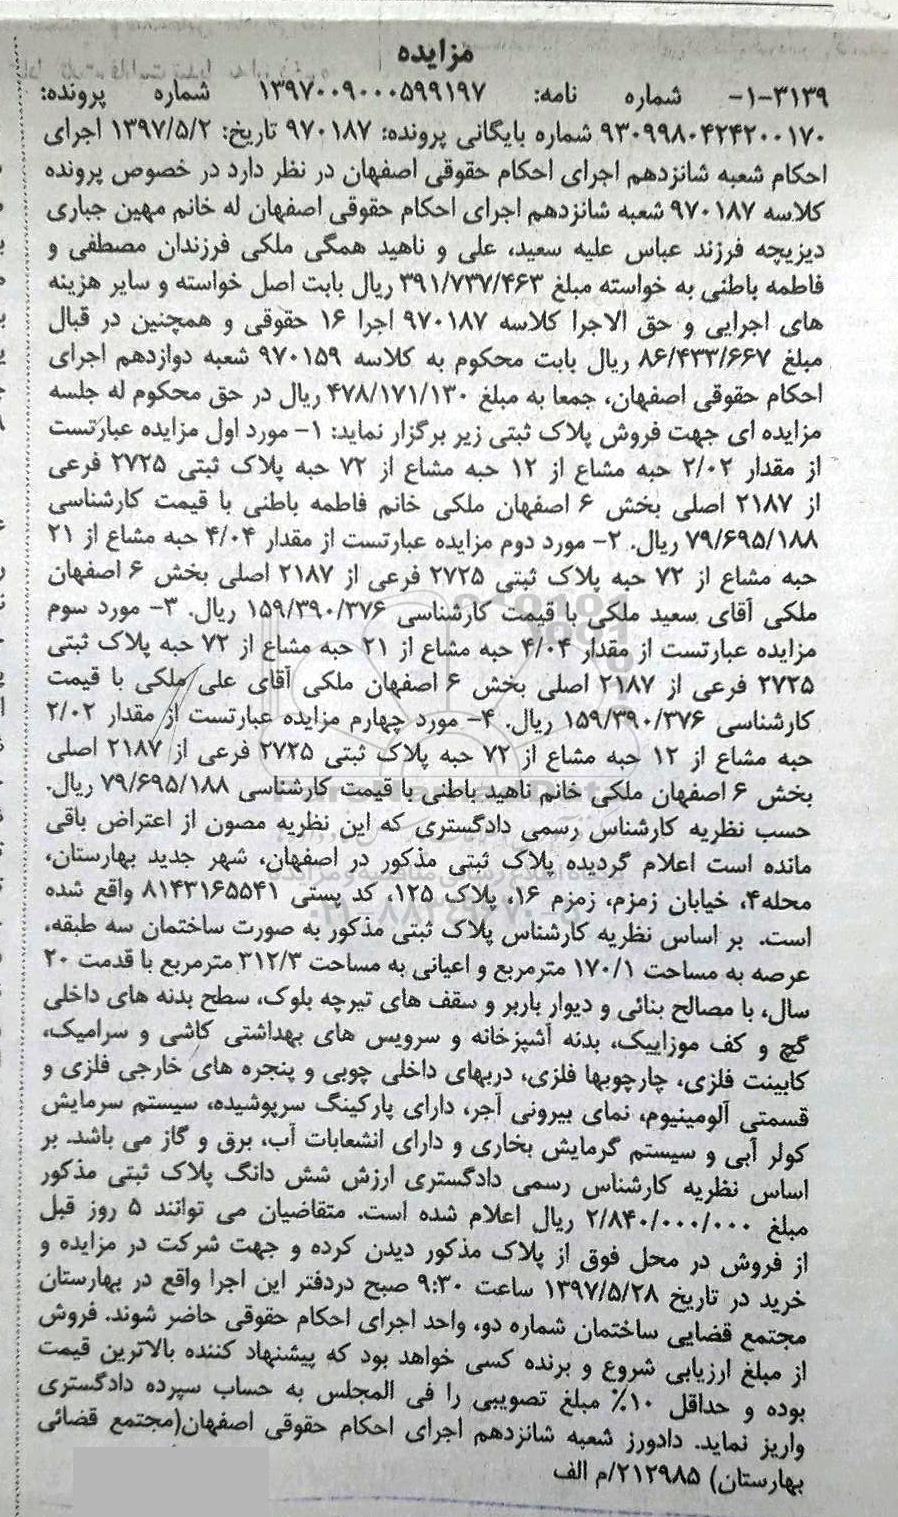 مزایده
۳۱۳۹-۱- شماره نامه: ۱۳۹۷۰۰۹۰۰۰۵۹۹۱۹۷ شماره پرونده:
۹۳۰۹۹۸۰۴۲۴۲۰۰۱۷۰ شماره بایگانی پرونده: ۹۷۰۱۸۷ تاریخ: ۱۳۹۷/۵/۲ اجرای
احکام شعبه شانزدهم اجرای احکام حقوقی اصفهان در نظر دارد در خصوص پرونده
کلاسه ۹۷۰۱۸۷ شعبه شانزدهم اجرای احکام حقوقی اصفهان له خانم مهین جباری
دیزیچه فرزند عباس علیه سعید، علی و ناهید همگی ملکی فرزندان مصطفی و
فاطمه باطنی به خواسته مبلغ ۳۹۱/۷۳۷/۴۶۳ ریال بابت اصل خواسته و سایر هزینه
های اجرایی و حق الاجرا کلاسه ۹۷۰۱۸۷ اجرا ۱۶ حقوقی و همچنین در قبال
مبلغ ۸۶/۴۳۳/۶۶۷ ریال بابت محکوم به کلاسه ۹۷۰۱۵۹ شعبه دوازدهم اجرای
احکام حقوقی اصفهان، جمعا به مبلغ ۴۷۸/۱۷۱/۱۳۰ ریال در حق محکوم له جلسه
مزایده ای جهت فروش پلاک ثبتی زیر برگزار نماید: ۱- مورد اول مزایده عبارتست
از مقدار ۲/۰۲ حبه مشاع از ۱۲ حبه مشاع از ۷۲ حبه پلاک ثبتی ۲۷۲۵ فرعی
از ۲۱۸۷ اصلی بخش ۶ اصفهان ملکی خانم فاطمه باطنی با قیمت کارشناسی
۷۹/۶۹۵/۱۸۸ ریال. ۲- مورد دوم مزایده عبارتست از مقدار ۴/۰۴ حبه مشاع از ۲۱
حبه مشاع از ۷۲ حبه پلاک ثبتی ۲۷۲۵ فرعی از ۲۱۸۷ اصلی بخش ۶ اصفهان
ملکی آقای سعید ملکی با قیمت کارشناسی ۱۵۹/۳۹۰/۳۷۶ ریال. ۳- مورد سوم
مزایده عبارتست از مقدار ۴/۰۴ حبه مشاع از ۲۱ حبه مشاع از ۷۲ حبه پلاک ثبتی
۲۷۲۵ فرعی از ۲۱۸۷ اصلی بخش ۶ اصفهان ملکی آقای علی ملکی با قیمت
کارشناسی ۱۵۹/۳۹۰/۳۷۶ ریال. ۴- مورد چهارم مزایده عبارتست از مقدار ۲/۰۲
حبه مشاع از ۱۲ حبه مشاع از ۷۲ حبه پلاک ثبتی ۲۷۲۵ فرعی از ۲۱۸۷ اصلی
بخش ۶ اصفهان ملکی خانم ناهید باطنی با قیمت کارشناسی ۷۹/۶۹۵/۱۸۸ ریال.
حسب نظریه کارشناس رسمی دادگستری که این نظریه مصون از اعتراض باقی
مانده است اعلام گردیده پلاک ثبتی مذکور در اصفهان، شهر جدید بهارستان،
محله۴، خیابان زمزم، زمزم ۱۶، پلاک ۱۲۵، کد پستی ۸۱۴۳۱۶۵۵۴۱ واقع شده
است. بر اساس نظریه کارشناس پلاک ثبتی مذکور به صورت ساختمان سه طبقه،
عرصه به مساحت ۱۷۰/۱ مترمربع و اعیانی به مساحت ۳۱۲/۳ مترمربع با قدمت ۲۰
سال، با مصالح بنائی و دیوار باربر و سقف های تیرچه بلوک، سطح بدنه های داخلی
گچ و کف موزاییک، بدنه آشپزخانه و سرویس های بهداشتی کاشی و سرامیک،
کابینت فلزی، چارچوبها فلزی، دربهای داخلی چوبی و پنجره های خارجی فلزی و
قسمتی آلومینیوم، نمای بیرونی آجر، دارای پارکینگ سرپوشیده، سیستم سرمایش
کولر آبی و سیستم گرمایش بخاری و دارای انشعابات آب، برق و گاز می باشد. بر
اساس نظریه کارشناس رسمی دادگستری ارزش شش دانگ پلاک ثبتی مذکور
مبلغ ۲/۸۴۰/۰۰۰/۰۰۰ ریال اعلام شده است. متقاضیان می توانند ۵ روز قبل
از فروش در محل فوق از پلاک مذکور دیدن کرده و جهت شرکت در مزایده و
خرید در تاریخ ۱۳۹۷/۵/۲۸ ساعت ۹:۳۰ صبح دردفتر این اجرا واقع در بهارستان
مجتمع قضایی ساختمان شماره دو، واحد اجرای احکام حقوقی حاضر شوند. فروش
از مبلغ ارزیابی شروع و برنده کسی خواهد بود که پیشنهاد کننده بالاترین قیمت
بوده و حداقل ۱۰٪ مبلغ تصویبی را فی المجلس به حساب سپرده دادگستری
واریز نماید. دادورز شعبه شانزدهم اجرای احکام حقوقی اصفهان(مجتمع قضائی
بهارستان) ۲۱۲۹۸۵/م الف